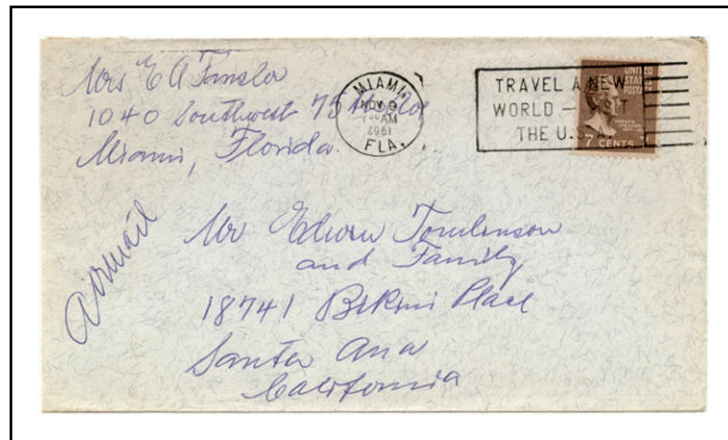 Mrs E A
1040 Southwest 75
Miami, Florida
MIAMI
NOV 9
AM
1962
FLA.
TRAVEL A NEW
WORLD –
THE U.S.A.
UNITED
STATES
POSTAGE
7 CENTS
airmail
Mr Edwin Tomlinson
and Family
18741 Bikini Place
Santa Ana
California